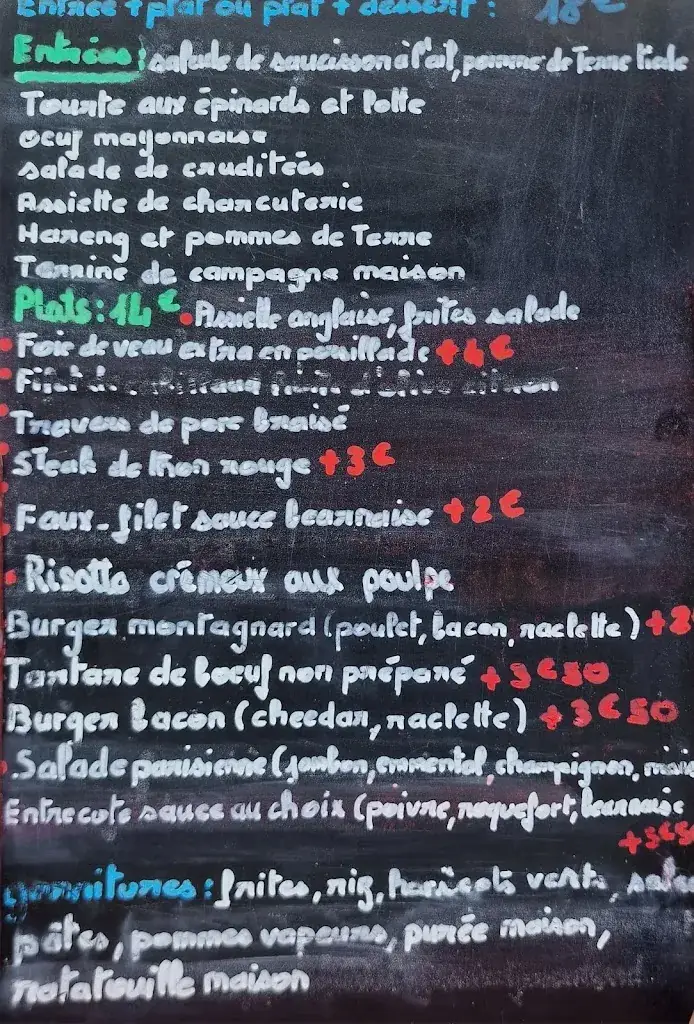 Entrée + plat ou plat + dessert : 18€
Entrées : salade de saucisson à l'ail, pomme de Terre tiède
Tourte aux épinards et
oeuf mayonnaise
salade de cruditées
Assiette de charcuterie
Hareng et pommes de Terre
Terrine de campagne maison
Plats : 14€ Assiette anglaise, frites salade
Foie de veau extra en persillade +4€
Travers de porc braisé
Steak de thon rouge +3€
Faux-filet sauce bearnaise +2€
Risotto crémeux aux poulpe
Burger montagnard (poulet, bacon, raclette) +2
Tartare de boeuf non préparé +3€50
Burger bacon (cheedar, raclette) +3€50
Salade parisienne (jambon, emmental, champignon, maïs
Entrecote sauce au choix (poivre, roquefort, bearnaise
+3€5
garnitures : frites, riz, haricots verts,
pâtes, pommes vapeurs, purée maison,
ratatouille maison